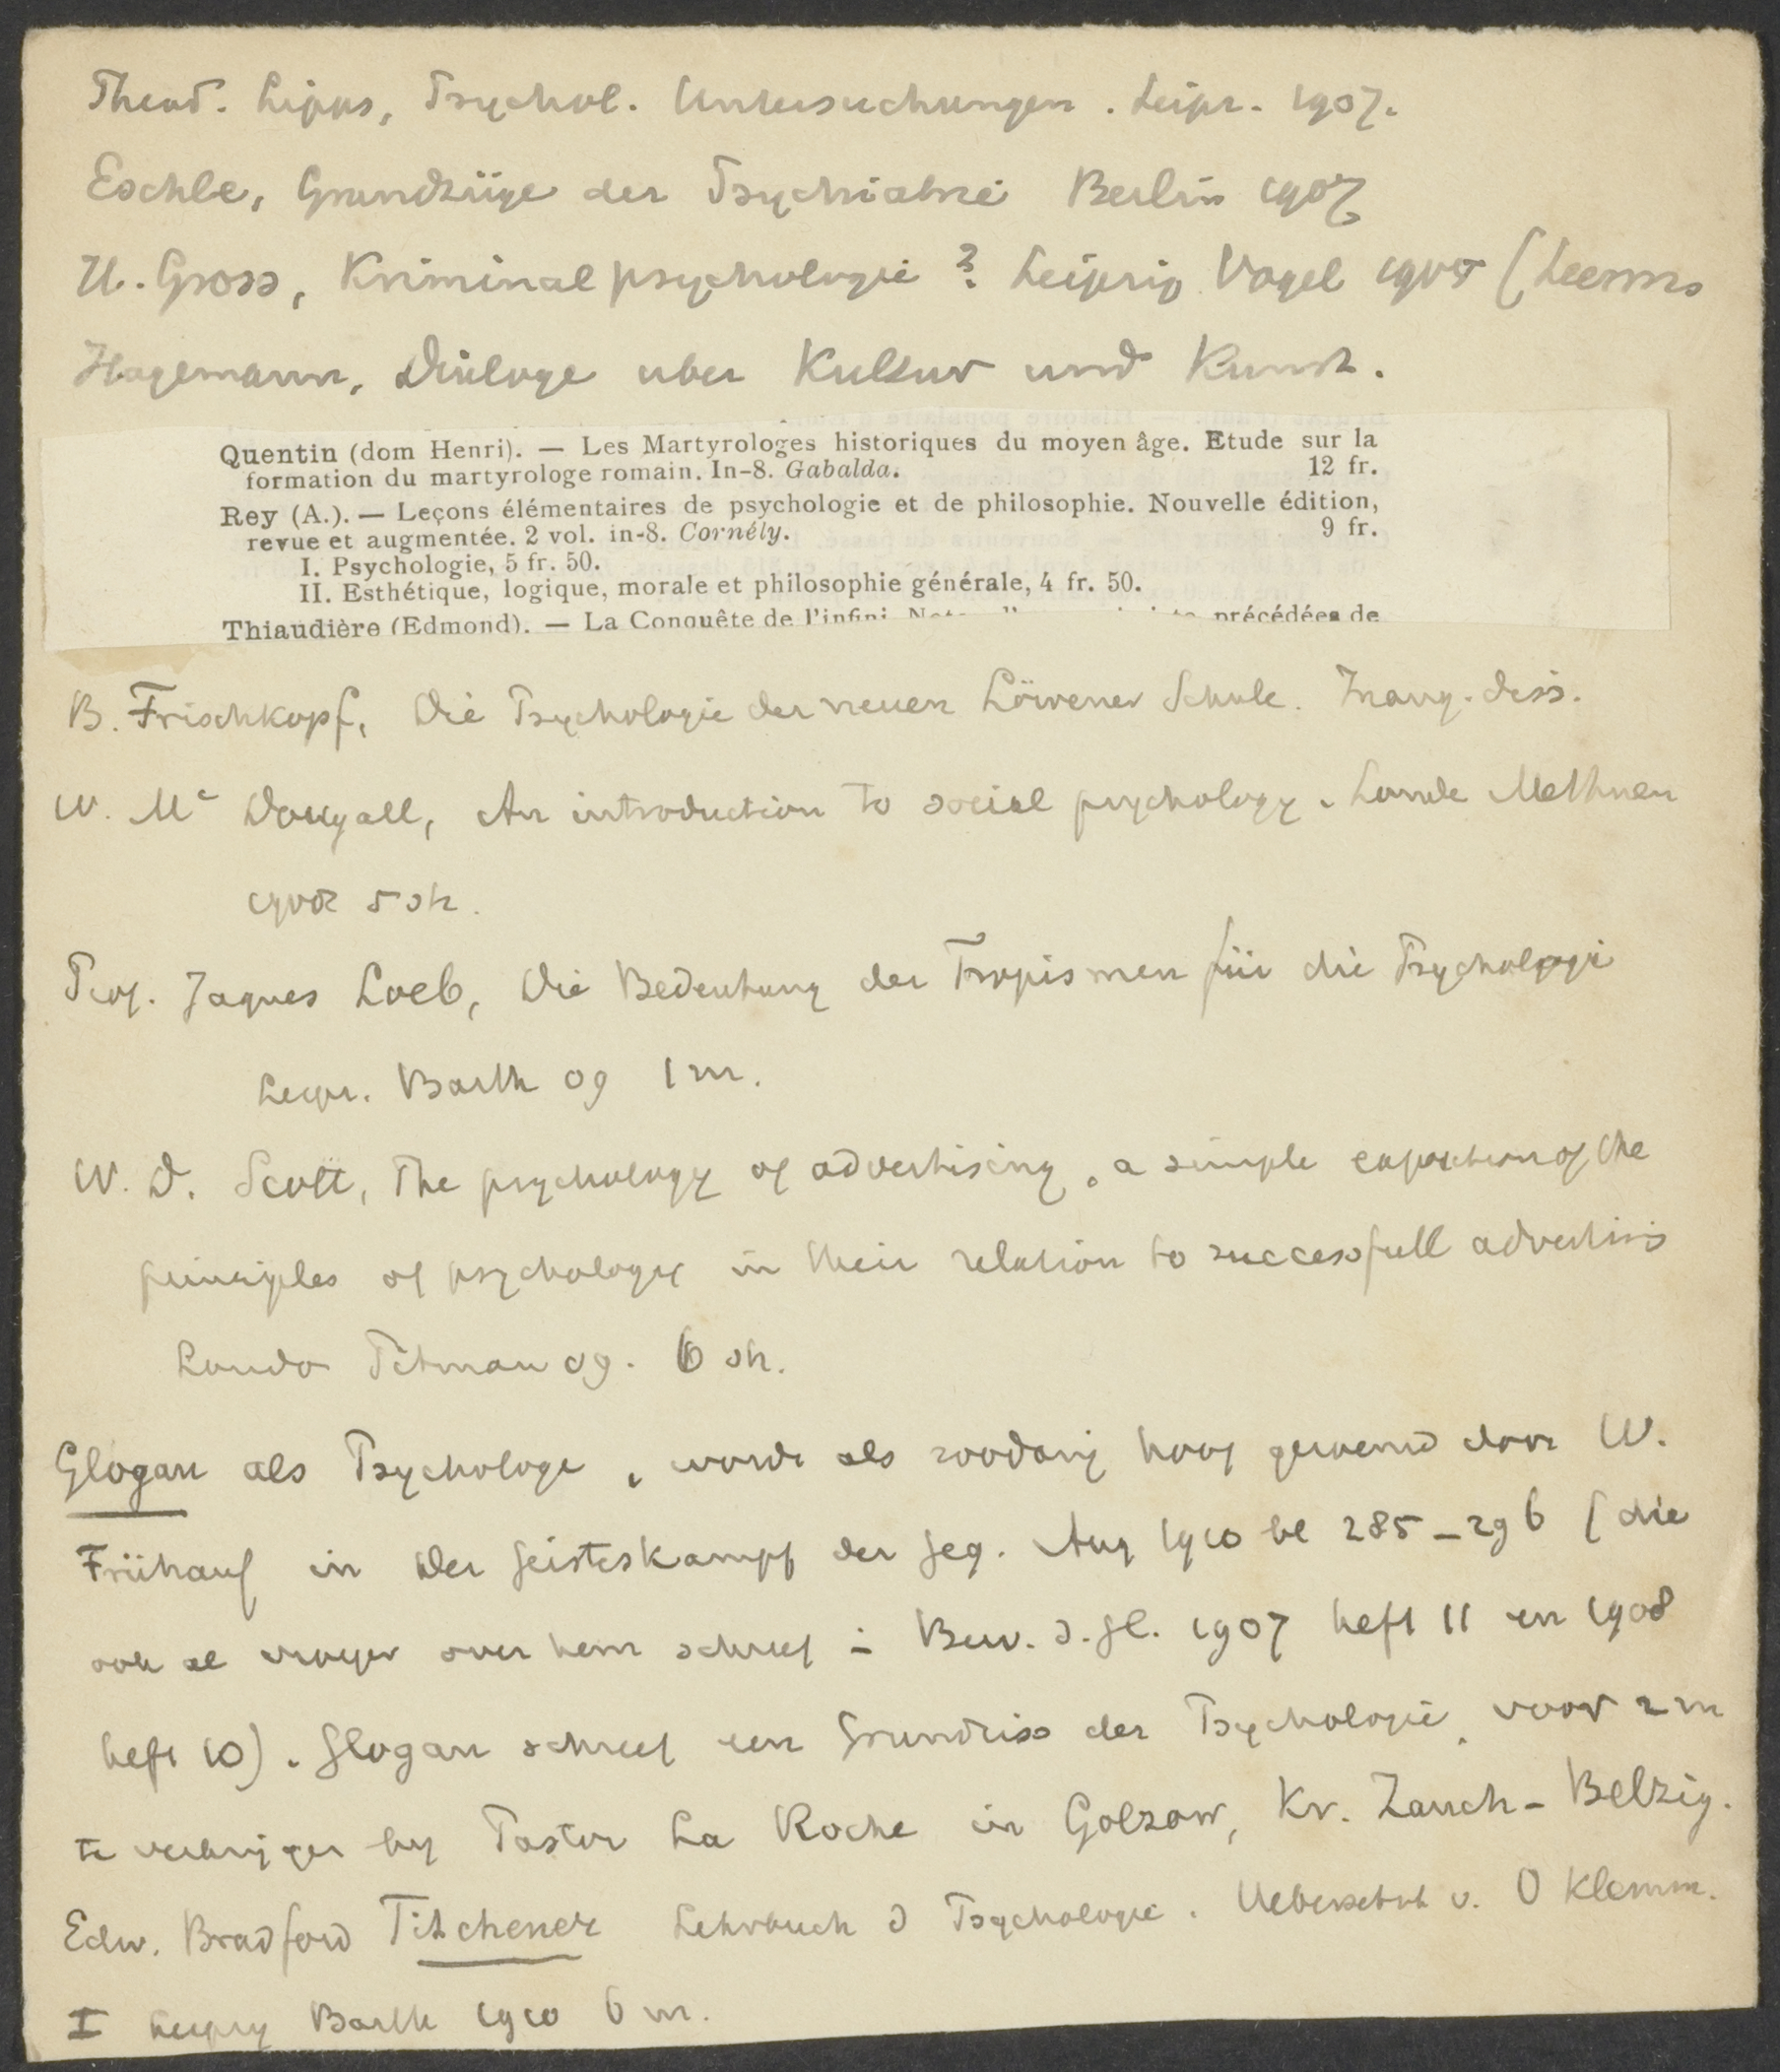 Theod. Lipps, Psychol. Untersuchungen. Leipz. 1907.
Eschle, Grundzüge der Psychiatrie Berlin 1907
H. Gross, Kriminalpsychologie 2 Leipzig Vogel 1905 (Leemns
Hagemann, Dialoge uber Kultur und Kunst.
Quentin (dom Henri). — Les Martyrologes historiques du moyen âge. Etude sur la
formation du martyrologe romain. In-8. Gabalda. 12 fr.
Rey (A.). — Leçons élémentaires de psychologie et de philosophie. Nouvelle édition,
revue et augmentée. 2 vol. in-8. Cornély. 9 fr.
I. Psychologie, 5 fr. 50.
II. Esthétique, logique, morale et philosophie générale, 4 fr. 50.
Thiaudière (Edmond). — La Conquête de l'infini. précédées de
B. Frischkopf, Die Psychologie der neuen Löwener Schule. Inaug. diss.
W. Mc Dougall, An introduction to social psychology. Londe Methuen
1908 5 sh.
Prof. Jaques Loeb, Die Bedeutung der Tropismen für die Psychologie
Leipz. Barth 09 1 m.
W. D. Scott, The psychology of advertising, a simple exposition of the
principles of psychology in their relation to successfull advertising
Londo Pitman 09. 6 sh.
Glogau als Psychologe, wordt als zoodanig hoog geroemd door W.
Frühauf in Der Geisteskampf der Geg. Aug 1910 bl 285–296 (die
ook al vroeger over hem schreef in Bew. d. Gl. 1907 heft 11 en 1908
heft 10). Glogau schreef een Grundriss der Psychologie, voor 2 m
te verkrijgen by Pastor La Roche in Golzow, Kr. Zauch-Belzig.
Edw. Bradford Titchener Lehrbuch d Psychologie. Uebersetzt v. O Klemm.
I Leipzig Barth 1910 6 m.